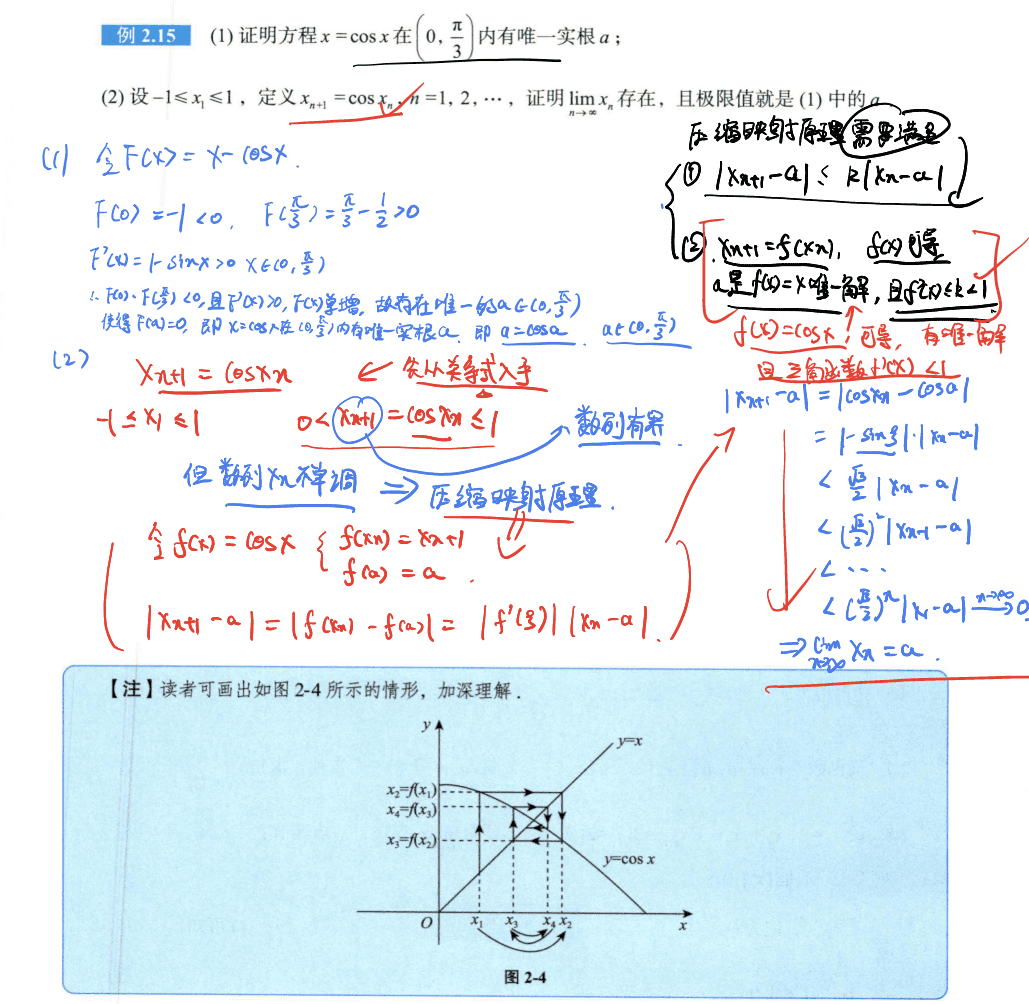 例 2.15 (1) 证明方程 x = cos x 在 (0, π/3) 内有唯一实根 a；
(2) 设 −1≤x₁≤1，定义 xₙ₊₁ = cos xₙ，n = 1, 2, ⋯，证明 lim(n→∞) xₙ 存在，且极限值就是 (1) 中的 a
(1) 令 F(x) = x − cosx.
F(0) = −1 < 0, F(π/3) = π/3 − 1/2 > 0
F'(x) = 1 − sinx > 0 x∈(0, π/3)
∴ F(0)·F(π/3) < 0, 且 F'(x) > 0, F(x)单增, 故存在唯一的 a∈(0, π/3)
使得 F(a) = 0, 即 x = cosx 在 (0, π/3) 内有唯一实根 a. 即 a = cosa a∈(0, π/3)
(2)
xₙ₊₁ = cosxₙ ← 先从关系式入手
−1 ≤ x₁ ≤ 1 0 < xₙ₊₁ = cosxₙ ≤ 1 数列有界.
但数列xₙ不单调 ⇒ 压缩映射原理.
令 f(x) = cosx { f(xₙ) = xₙ₊₁
f(a) = a.
|xₙ₊₁ − a| = |f(xₙ) − f(a)| = |f'(ξ)| |xₙ − a|.
压缩映射原理需要满足
① |xₙ₊₁ − a| ≤ k|xₙ − a|
② xₙ₊₁ = f(xₙ), f(x)可导,
a是 f(x) = x 唯一解, 且 f'(x) ≤ k < 1
f(x) = cosx 可导, 有唯一解
且三角函数 f'(x) < 1
|xₙ₊₁ − a| = |cosxₙ − cosa|
= |−sinξ|·|xₙ − a|
< √3/2 |xₙ − a|
< (√3/2)² |xₙ₋₁ − a|
< ⋯
< (√3/2)ⁿ |x₁ − a| n→∞ → 0
⇒ lim(n→∞) xₙ = a.
【注】读者可画出如图 2-4 所示的情形，加深理解．
y
y=x
x₂=f(x₁)
x₄=f(x₃)
x₃=f(x₂)
y=cos x
O x₁ x₃ x₄ x₂ x
图 2-4